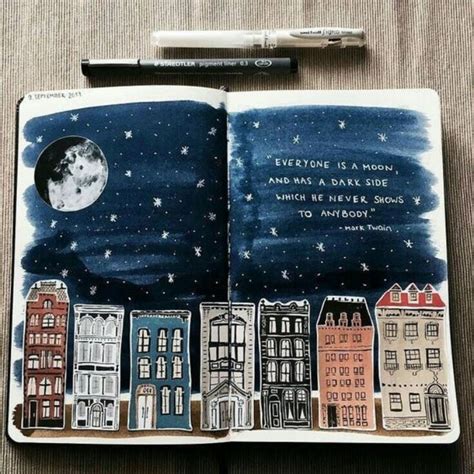 STAEDTLER pigment liner 0.3
9. SEPTEMBER 2017
"EVERYONE IS A MOON,
AND HAS A DARK SIDE
WHICH HE NEVER SHOWS
TO ANYBODY."
- MARK TWAIN